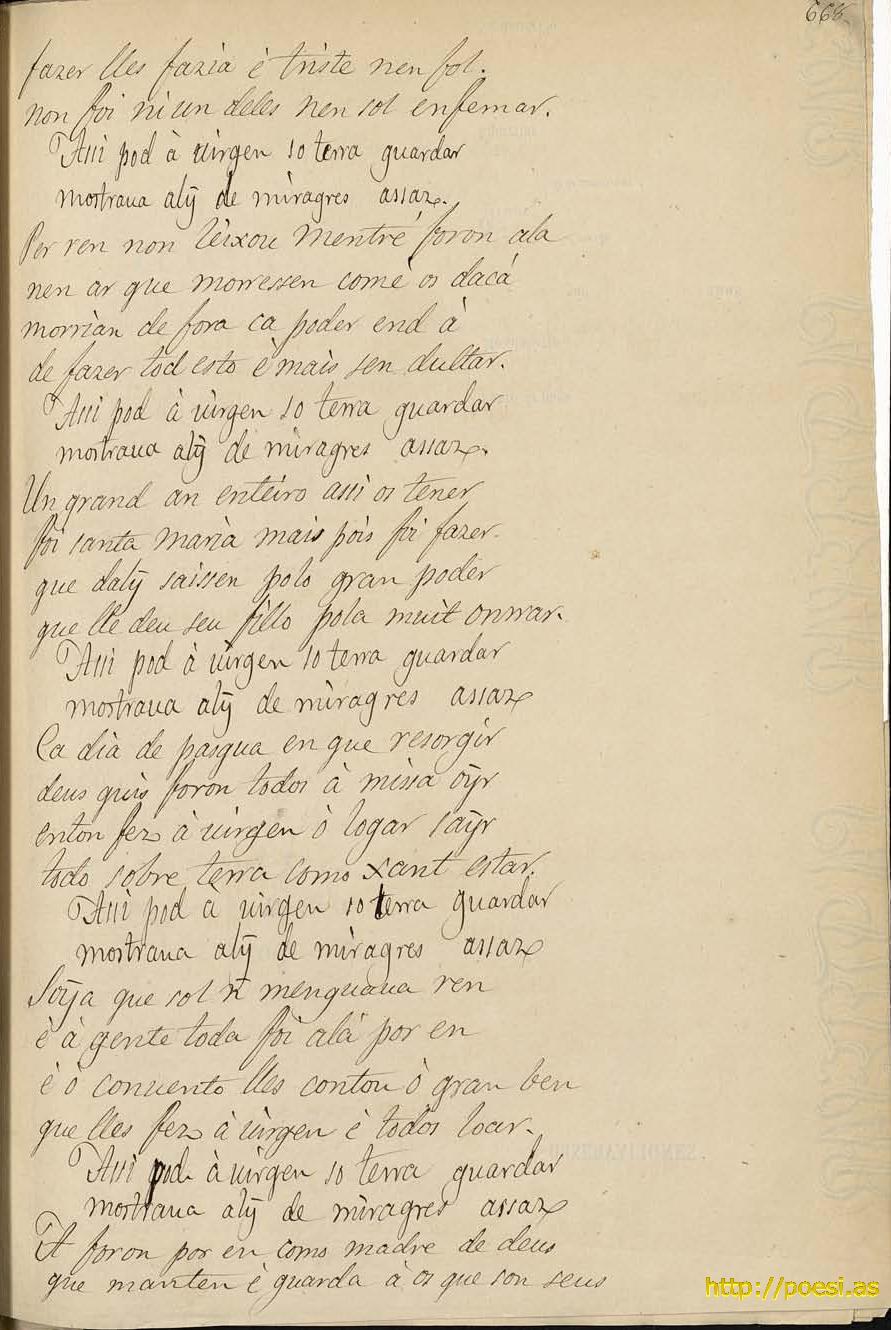 668
fazer lles fazia è triste nen fol.
non foi niun deles nen sol enfemar.
Assi pod à uirgen so terra guardar
mostraua alỹ de miragres assaz.
Per ren non leixou mentré foron ala
nen ar que morressen comè os dacá
morrian de fora ca poder end à
de fazer tod esto è mais sen dultar.
Assi pod à uirgen so terra guardar
mostraua alỹ de miragres assaz.
Un grand an enteiro assi os tener
foi santa maria mais pois foi fazer.
que dalỹ saissen polo gran poder
que lle deu seu fillo pola muit onrrar.
Assi pod à uirgen so terra guardar
mostraua alỹ de miragres assaz
Ca dia de pasgua en que resorgir
deus quis foron todos à missa oỹr
enton fez à uirgen ò logar saỹr
todo sobre terra como xant estar.
Assi pod a uirgen so terra guardar
mostraua alỹ de miragres assaz
Soỹa que sol n̄ menguaua ren
è à gente toda foi alá por en
è ò conuento lles contou ò gran ben
que lles fez à uirgen è todos loar.
Assi pod à uirgen so terra guardar
mostraua alỹ de miragres assaz
A foron por en como madre de deus
que manten è guarda à os que son seus
http://poesi.as